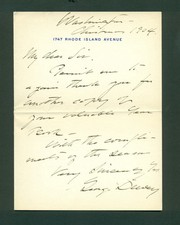 Washington
Christmas 1904
1747 RHODE ISLAND AVENUE
My dear Sir,
Permit me to
again thank you for
another copy of
your valuable Year
Book.
With the compli-
ments of the season
Very sincerely yrs
George Dewey